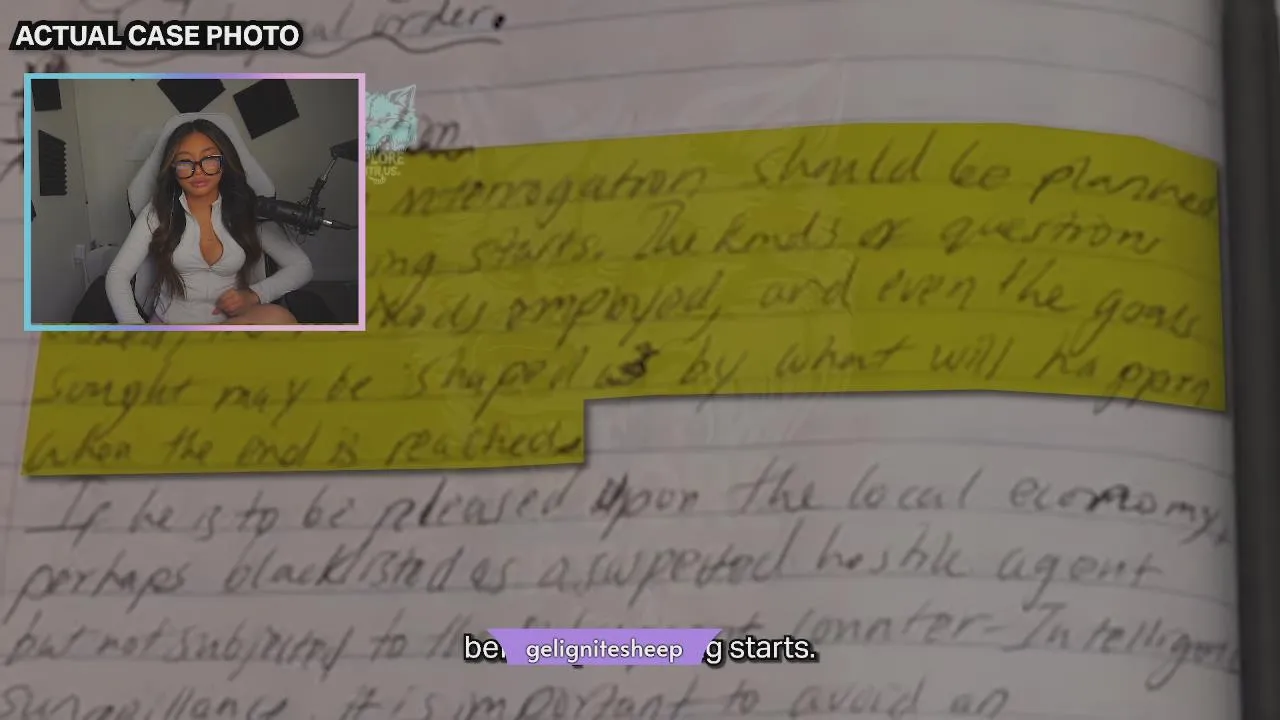 ACTUAL CASE PHOTO
order.
PLORE
WITH US.
interrogation should be planned
ing starts. The kinds of questions
employed, and even the goals
sought may be shaped by what will happen
when the end is reached.
If he is to be pleased upon the local economy,
perhaps blacklisted as a suspected hostile agent
but not subjected to counter-Intelligen
surveillance, it is important to avoid an
gelignitesheep
g starts.